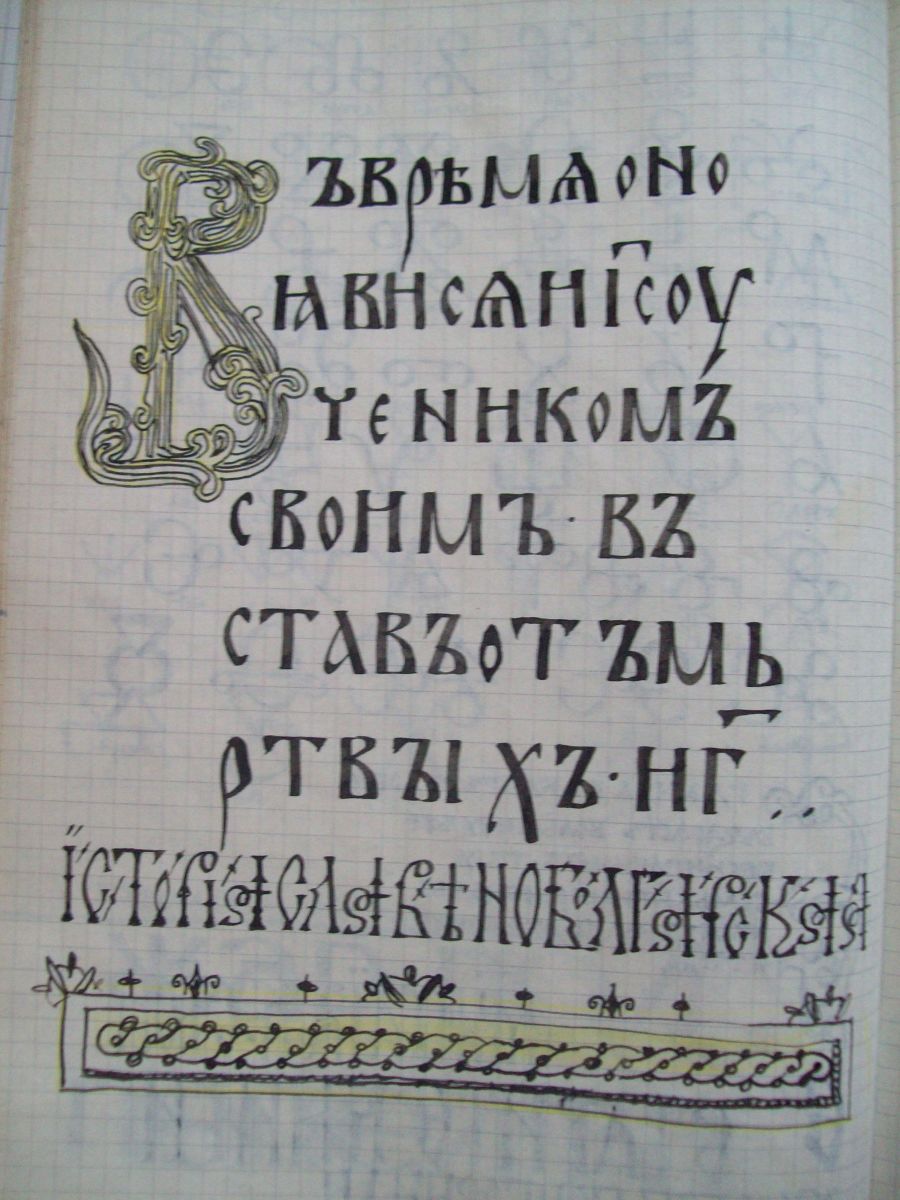 Въ врѣмѧ оно
ꙗви сѧ н҃ı҃с оу
ченикомъ
своимъ · въ
ставъ отъ мь
ртвъıхъ · н г҃ ..
їсторїѧ славѣноболгарскаѧ